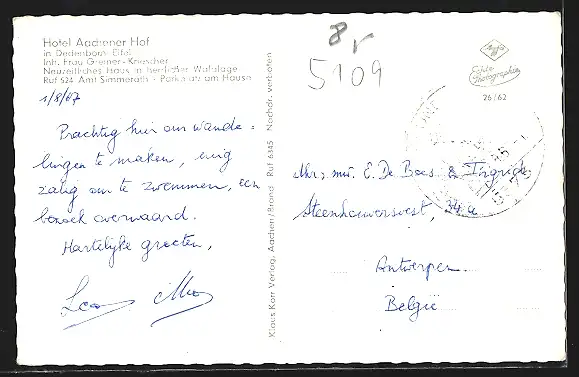 Hotel Aachener Hof
in Dedenborn Eifel
Inh. Frau Greiner-Kriescher
Neuzeitliches Haus in herrlicher Waldlage
Ruf 524 Amt Simmerath · Parkplatz am Hause
1/8/67
Prachtig hier om wande-
lingen te maken, enig
zalig om te zwemmen, een
bezoek overwaard.
Hartelijke groeten,
Klaus Karr Verlag, Aachen/Brand Ruf 6345 Nachdr. verboten
8,-
5109
Agfa
Echte
Photographie
76/62
Mhr & mw. E. De Boes & Ingrid
Steenhouwersvest, 34a
Antwerpen
België